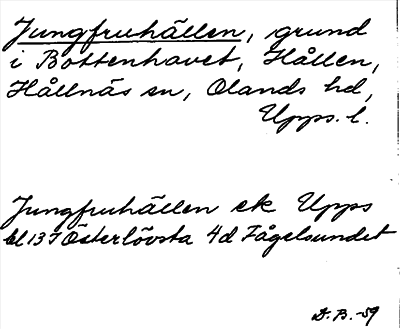 Jungfruhällen, grund
i Bottenhavet, Hållen,
Hållnäs sn, Olands hd,
Upps. l.
Jungfruhällen ek Upps
bl 13 I Österlövsta 4d Fågelsundet
D. B. -59